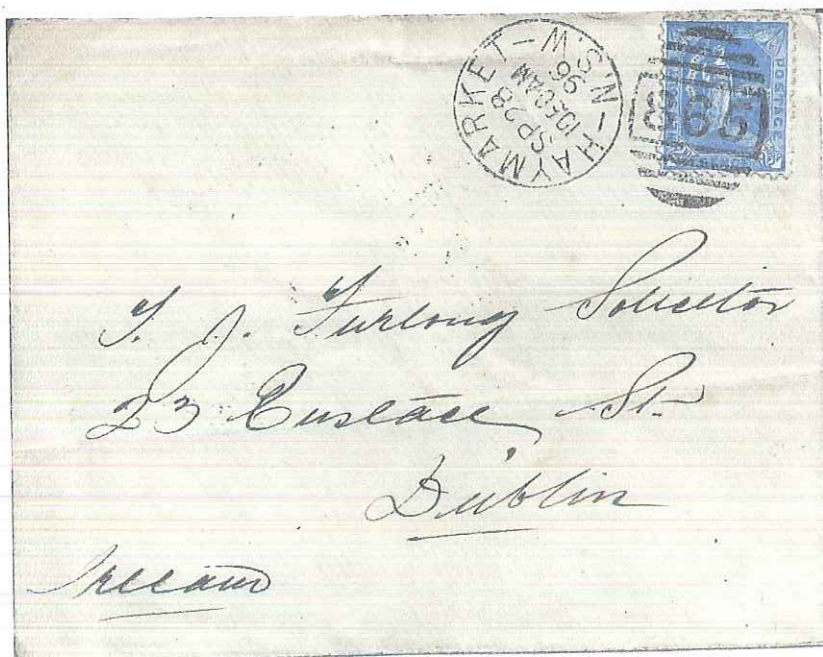 HAYMARKET
N.S.W
SP 28
96
POSTAGE
T. J. Furlong Solicitor
23 Eustace St.
Dublin
Ireland